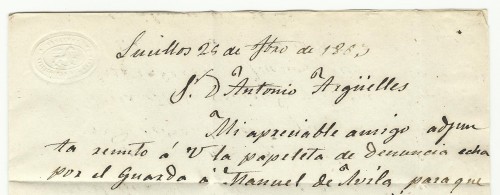 Lucillos 26 de Fbro de 186
Sr. Dn Antonio Argüelles
Mi apreciable amigo adjun
ta remito á V la papeleta de denuncia echa
por el Guarda á Manuel de Avila para que